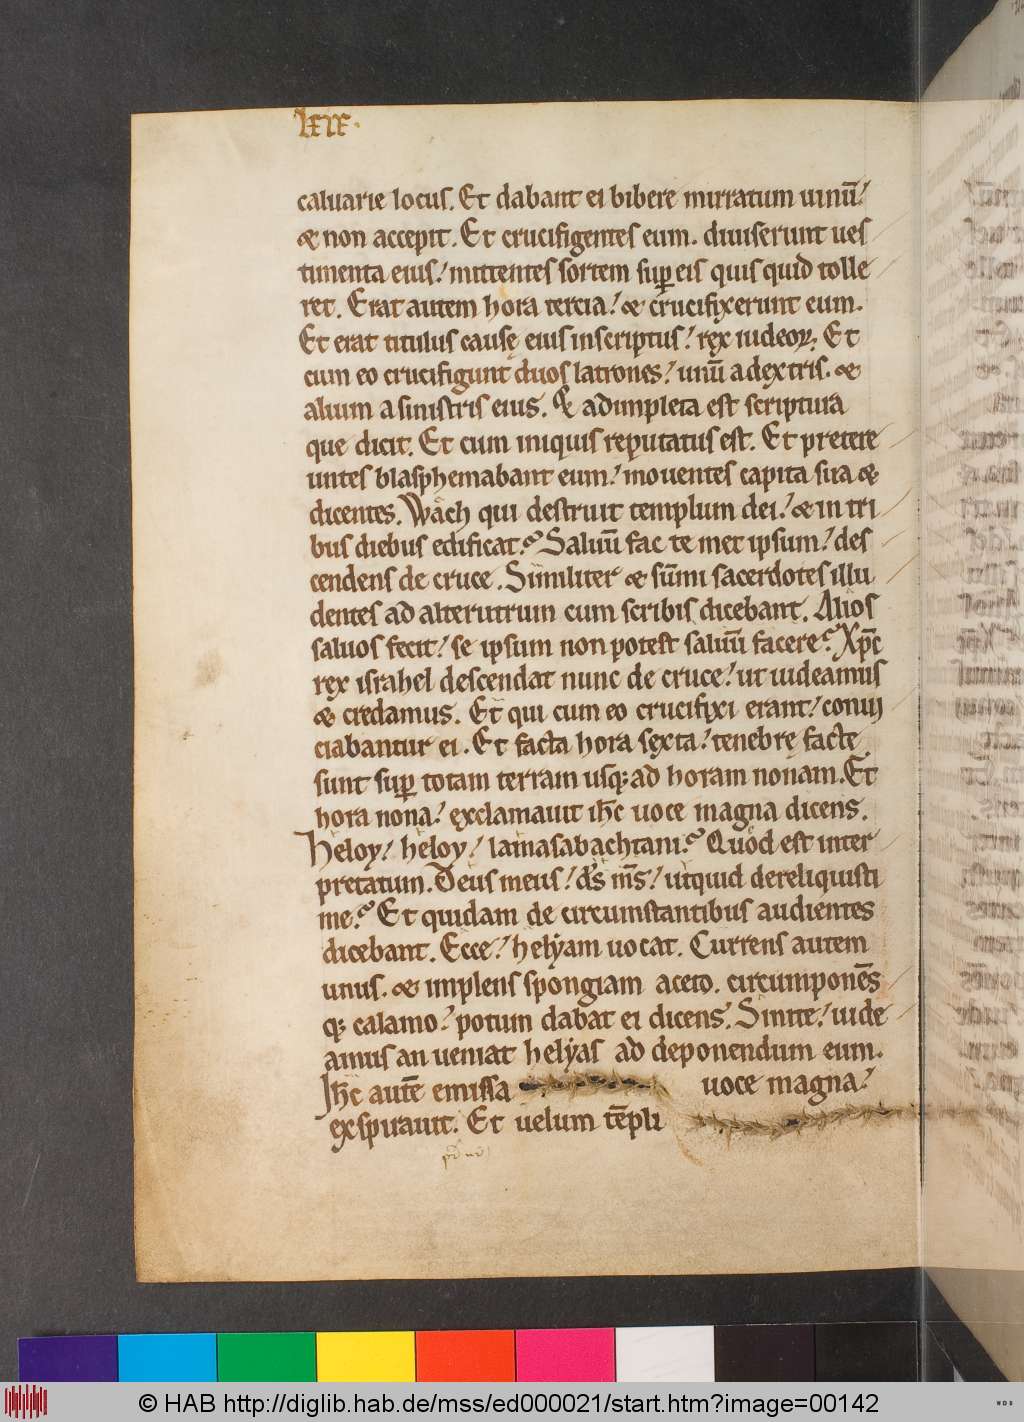 lxix.
caluarie locus. Et dabant ei bibere mirratum uinū!
& non accepit. Et crucifigentes eum. diuiserunt ues
timenta eius! mittentes sortem suꝑ eis quis quid tolle
ret. Erat autem hora tercia! & crucifixerunt eum.
Et erat titulus causę eius inscriptus! rex iudeoꝝ. Et
cum eo crucifigunt duos latrones! unū a dextris. &
alium a sinistris eius. & adimpleta est scriptura
que dicit. Et cum iniquis reputatus est. Et pretere
untes blasphemabant eum! mouentes capita sua &
dicentes. Wach qui destruit templum dei! & in tri
bus diebus edificat? Saluū fac te met ipsum! des
cendens de cruce. Similiter & sūmi sacerdotes illu
dentes ad alterutrum cum scribis dicebant. Alios
saluos fecit! se ipsum non potest saluū facere? Xp̄c
rex israhel descendat nunc de cruce! ut uideamus
& credamus. Et qui cum eo crucifixi erant! conui
ciabantur ei. Et facta hora sexta! tenebrę factę
sunt suꝑ totam terram usq; ad horam nonam. Et
hora nona! exclamauit ih̄c uoce magna dicens.
Heloy! heloy! lamasabachtani? Quod est inter
pretatum. Deus meus! ds̄ ms̄! utquid dereliquisti
me? Et quidam de circumstantibus audientes
dicebant. Ecce! helyam uocat. Currens autem
unus. & implens spongiam aceto. circumponēs
q; calamo! potum dabat ei dicens. Sinite! uide
amus an ueniat helyas ad deponendum eum.
Ih̄c autē emissa uoce magna!
exspirauit. Et uelum tēpli
© HAB http://diglib.hab.de/mss/ed000021/start.htm?image=00142